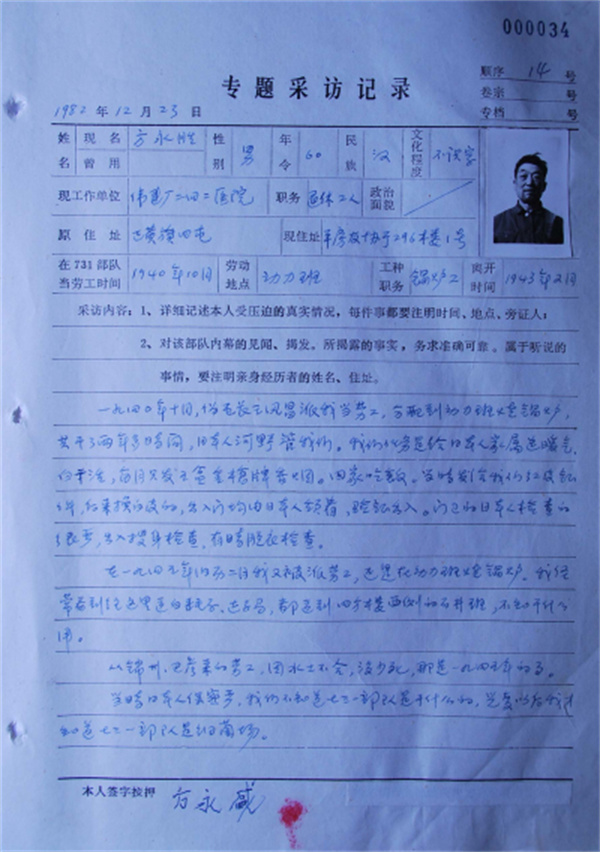 000034
顺序 14 号
专题采访记录 卷宗 号
1982年12月23日 专档 号
姓名 现名 方永胜 性别 男 年令 60 民族 汉 文化程度 不识字
曾用
现工作单位 伟建厂二四二医院 职务 退休工人 政治面貌
原住址 正黄旗四屯 现住址 平房友协于296木楼1号
在731部队当劳工时间 1940年10月 劳动地点 动力班 工种职务 锅炉工 离开时间 1943年2月
采访内容:1、详细记述本人受压迫的真实情况,每件事都要注明时间、地点、旁证人;
2、对该部队内幕的见闻、揭发。所揭露的事实,务求准确可靠。属于听说的
事情,要注明亲身经历者的姓名、住址。
一九四〇年十月,伪屯长 派我当劳工,分配到动力班烧锅炉,
共干了两年多时间,日本人河野管我们。我们的任务是给日本人家属送暖气,
每月只发 金 。回家吃饭。当时发给我们红皮
,后来换白皮的,出入门均由日本人领着,验证出入。门卫的日本人检查的
很严,出入搜身检查,有时脱衣检查。
在一九四五年的 二月我又被派劳工,还是在动力班烧锅炉。我经
常看到往这里送白耗子、 马,都送到四方楼西侧的石井班,不知干什么
用。
从锦州、 来的劳工,因水土不合,没少死,那是一九四五年的事。
当时日本人保密严,我们不知道七三一部队是干什么的,光复以后我才
知道七三一部队是细菌场。
本人签字按押 方永盛